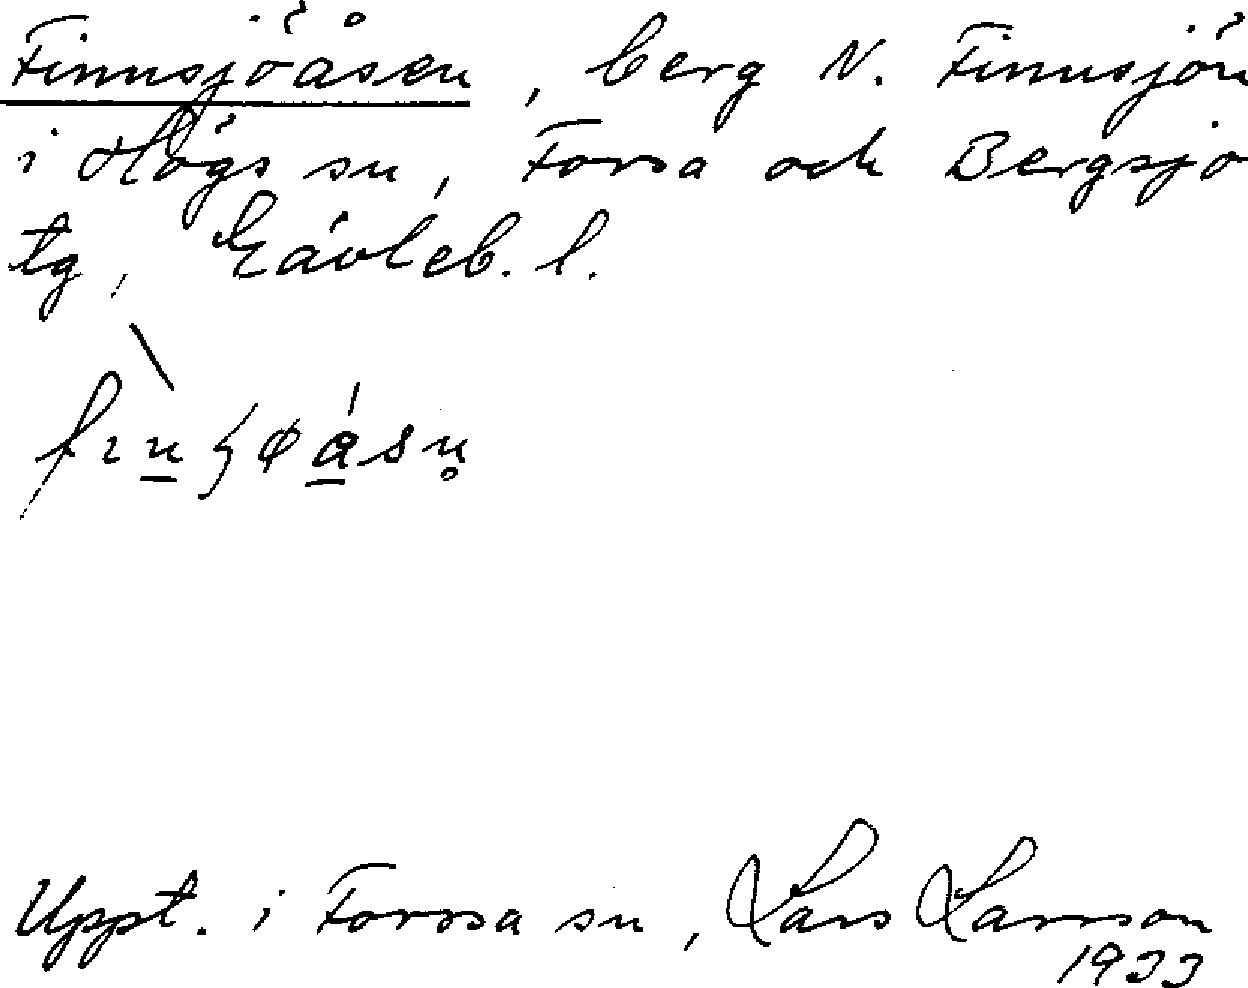 Finnsjöåsen, berg N. Finnsjön
i Högs sn, Forsa och Bergsjö
tg, Gävleb. l.
Uppt. i Forssa sn, Lars Larsson
1933